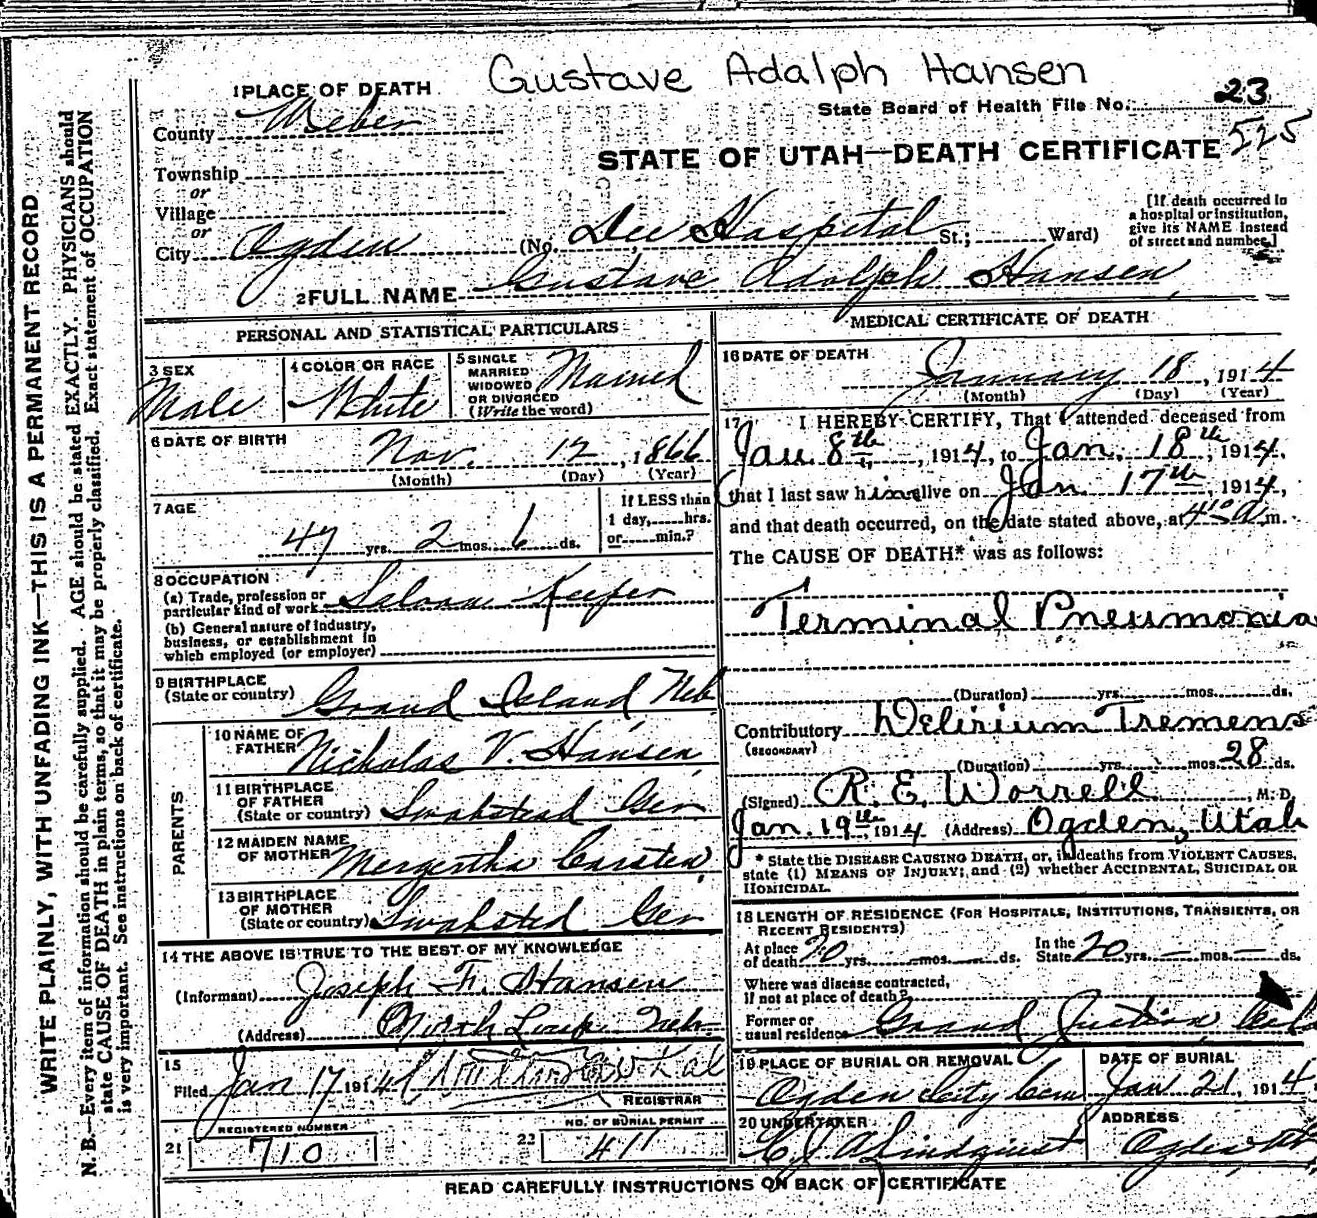 Gustave Adalph Hansen
1 PLACE OF DEATH
State Board of Health File No. 23
County Weber
525
STATE OF UTAH—DEATH CERTIFICATE
Township
or
Village
or
City Ogden (No. Dee Hospital St.; Ward)
[If death occurred in
a hospital or institution,
give its NAME instead
of street and number.]
2 FULL NAME Gustave Adolph Hansen
PERSONAL AND STATISTICAL PARTICULARS
3 SEX
Male
4 COLOR OR RACE
White
5 SINGLE
MARRIED
WIDOWED
OR DIVORCED
(Write the word)
Married
6 DATE OF BIRTH
Nov. 12, 1866
(Month) (Day) (Year)
7 AGE
47 yrs. 2 mos. 6 ds.
If LESS than
1 day, hrs.
or min.?
8 OCCUPATION
(a) Trade, profession or
particular kind of work Saloon Keeper
(b) General nature of industry,
business, or establishment in
which employed (or employer)
9 BIRTHPLACE
(State or country) Grand Island Neb
PARENTS
10 NAME OF
FATHER Nicholas V. Hansen
11 BIRTHPLACE
OF FATHER
(State or country) Swabstead Ger
12 MAIDEN NAME
OF MOTHER Mergertha Carsten
13 BIRTHPLACE
OF MOTHER
(State or country) Swabsted Ger
14 THE ABOVE IS TRUE TO THE BEST OF MY KNOWLEDGE
(Informant) Joseph F. Hansen
(Address) North Loup Neb.
15
Filed Jan 17 1914
REGISTRAR
REGISTERED NUMBER
21 710
NO. OF BURIAL PERMIT
22 411
MEDICAL CERTIFICATE OF DEATH
16 DATE OF DEATH
January 18, 1914
(Month) (Day) (Year)
17 I HEREBY CERTIFY, That I attended deceased from
Jan. 8th, 1914, to Jan. 18th, 1914,
that I last saw him alive on Jan. 17th 1914,
and that death occurred, on the date stated above, at 4 10 a m.
The CAUSE OF DEATH* was as follows:
Terminal Pneumonia
(Duration) yrs. mos. ds.
Contributory Delirium Tremens
(SECONDARY)
(Duration) yrs. mos. 28 ds.
(Signed) R. E. Worrell M. D.
Jan. 19th, 1914 (Address) Ogden, Utah
* State the DISEASE CAUSING DEATH, or, in deaths from VIOLENT CAUSES,
state (1) MEANS OF INJURY; and (2) whether ACCIDENTAL, SUICIDAL OR
HOMICIDAL.
18 LENGTH OF RESIDENCE (FOR HOSPITALS, INSTITUTIONS, TRANSIENTS, OR
RECENT RESIDENTS)
At place
of death 20 yrs. — mos. — ds.
In the
State 20 yrs. — mos. — ds.
Where was disease contracted,
if not at place of death?
Former or
usual residence Grand Juction, Col
19 PLACE OF BURIAL OR REMOVAL
Ogden City Cem
DATE OF BURIAL
Jan 21, 1914
20 UNDERTAKER
C. J. A. Lindquist
ADDRESS
Ogden
READ CAREFULLY INSTRUCTIONS ON BACK OF CERTIFICATE
WRITE PLAINLY, WITH UNFADING INK—THIS IS A PERMANENT RECORD
N. B.—Every item of information should be carefully supplied. AGE should be stated EXACTLY. PHYSICIANS should
state CAUSE OF DEATH in plain terms, so that it may be properly classified. Exact statement of OCCUPATION
is very important. See instructions on back of certificate.